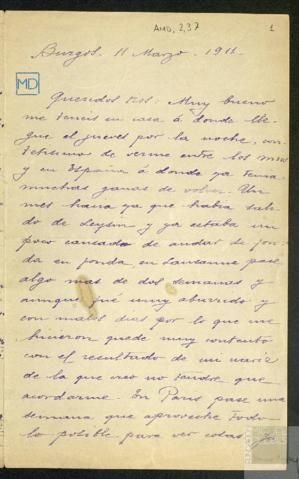 AMD, 2,37
1
Burgos. 11 Marzo. 1911.
MD
Queridos tios: Muy bueno
me teneis en casa á donde lle-
gue el jueves por la noche, con-
tentisimo de verme entre los mios
y en España á donde ya tenia
muchas ganas de volver. Un
mes hacia ya que habia sali-
do de Leysin y ya estaba un
poco cansado de andar de fon-
da en fonda, en Lausanne pase
algo mas de dos semanas y
aunque fué muy aburrido y
con malos dias por lo que me
hicieron quede muy contento
con el resultado de mi nariz
de la que creo no tendre que
acordarme. En Paris pase una
semana que aproveche todo
lo posible para ver cosas